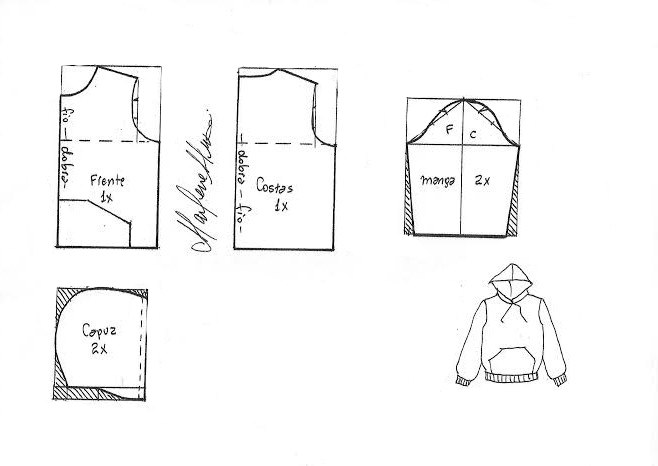 fio - dobra-
Frente
1x
dobra - fio-
Costas
1x
F
C
manga
2x
Capuz
2x